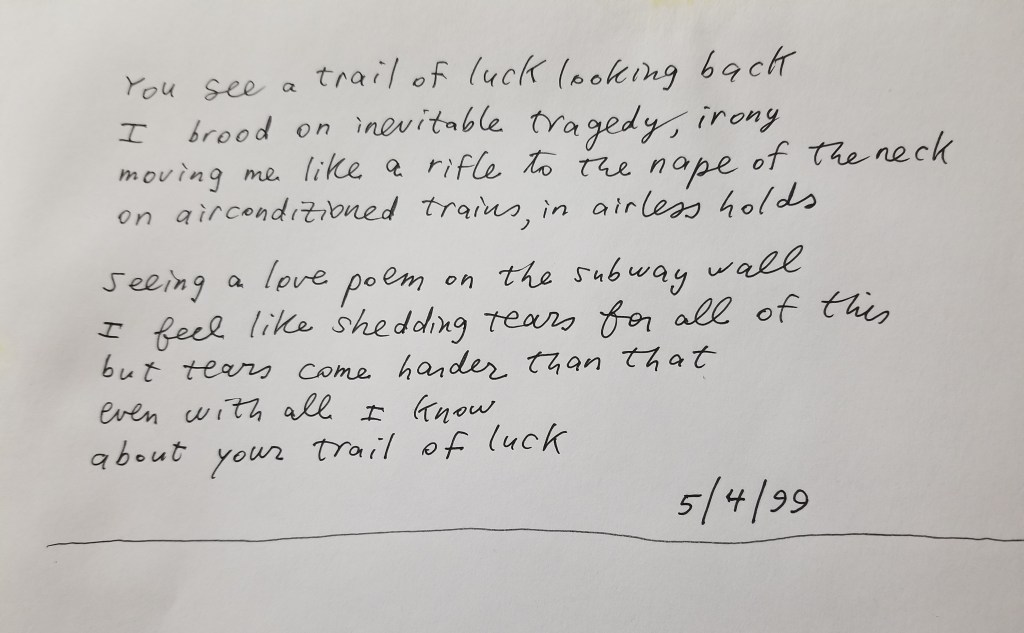 You see a trail of luck looking back
I brood on inevitable tragedy, irony
moving me like a rifle to the nape of the neck
on airconditioned trains, in airless holds
seeing a love poem on the subway wall
I feel like shedding tears for all of this
but tears come harder than that
even with all I know
about your trail of luck
5/4/99